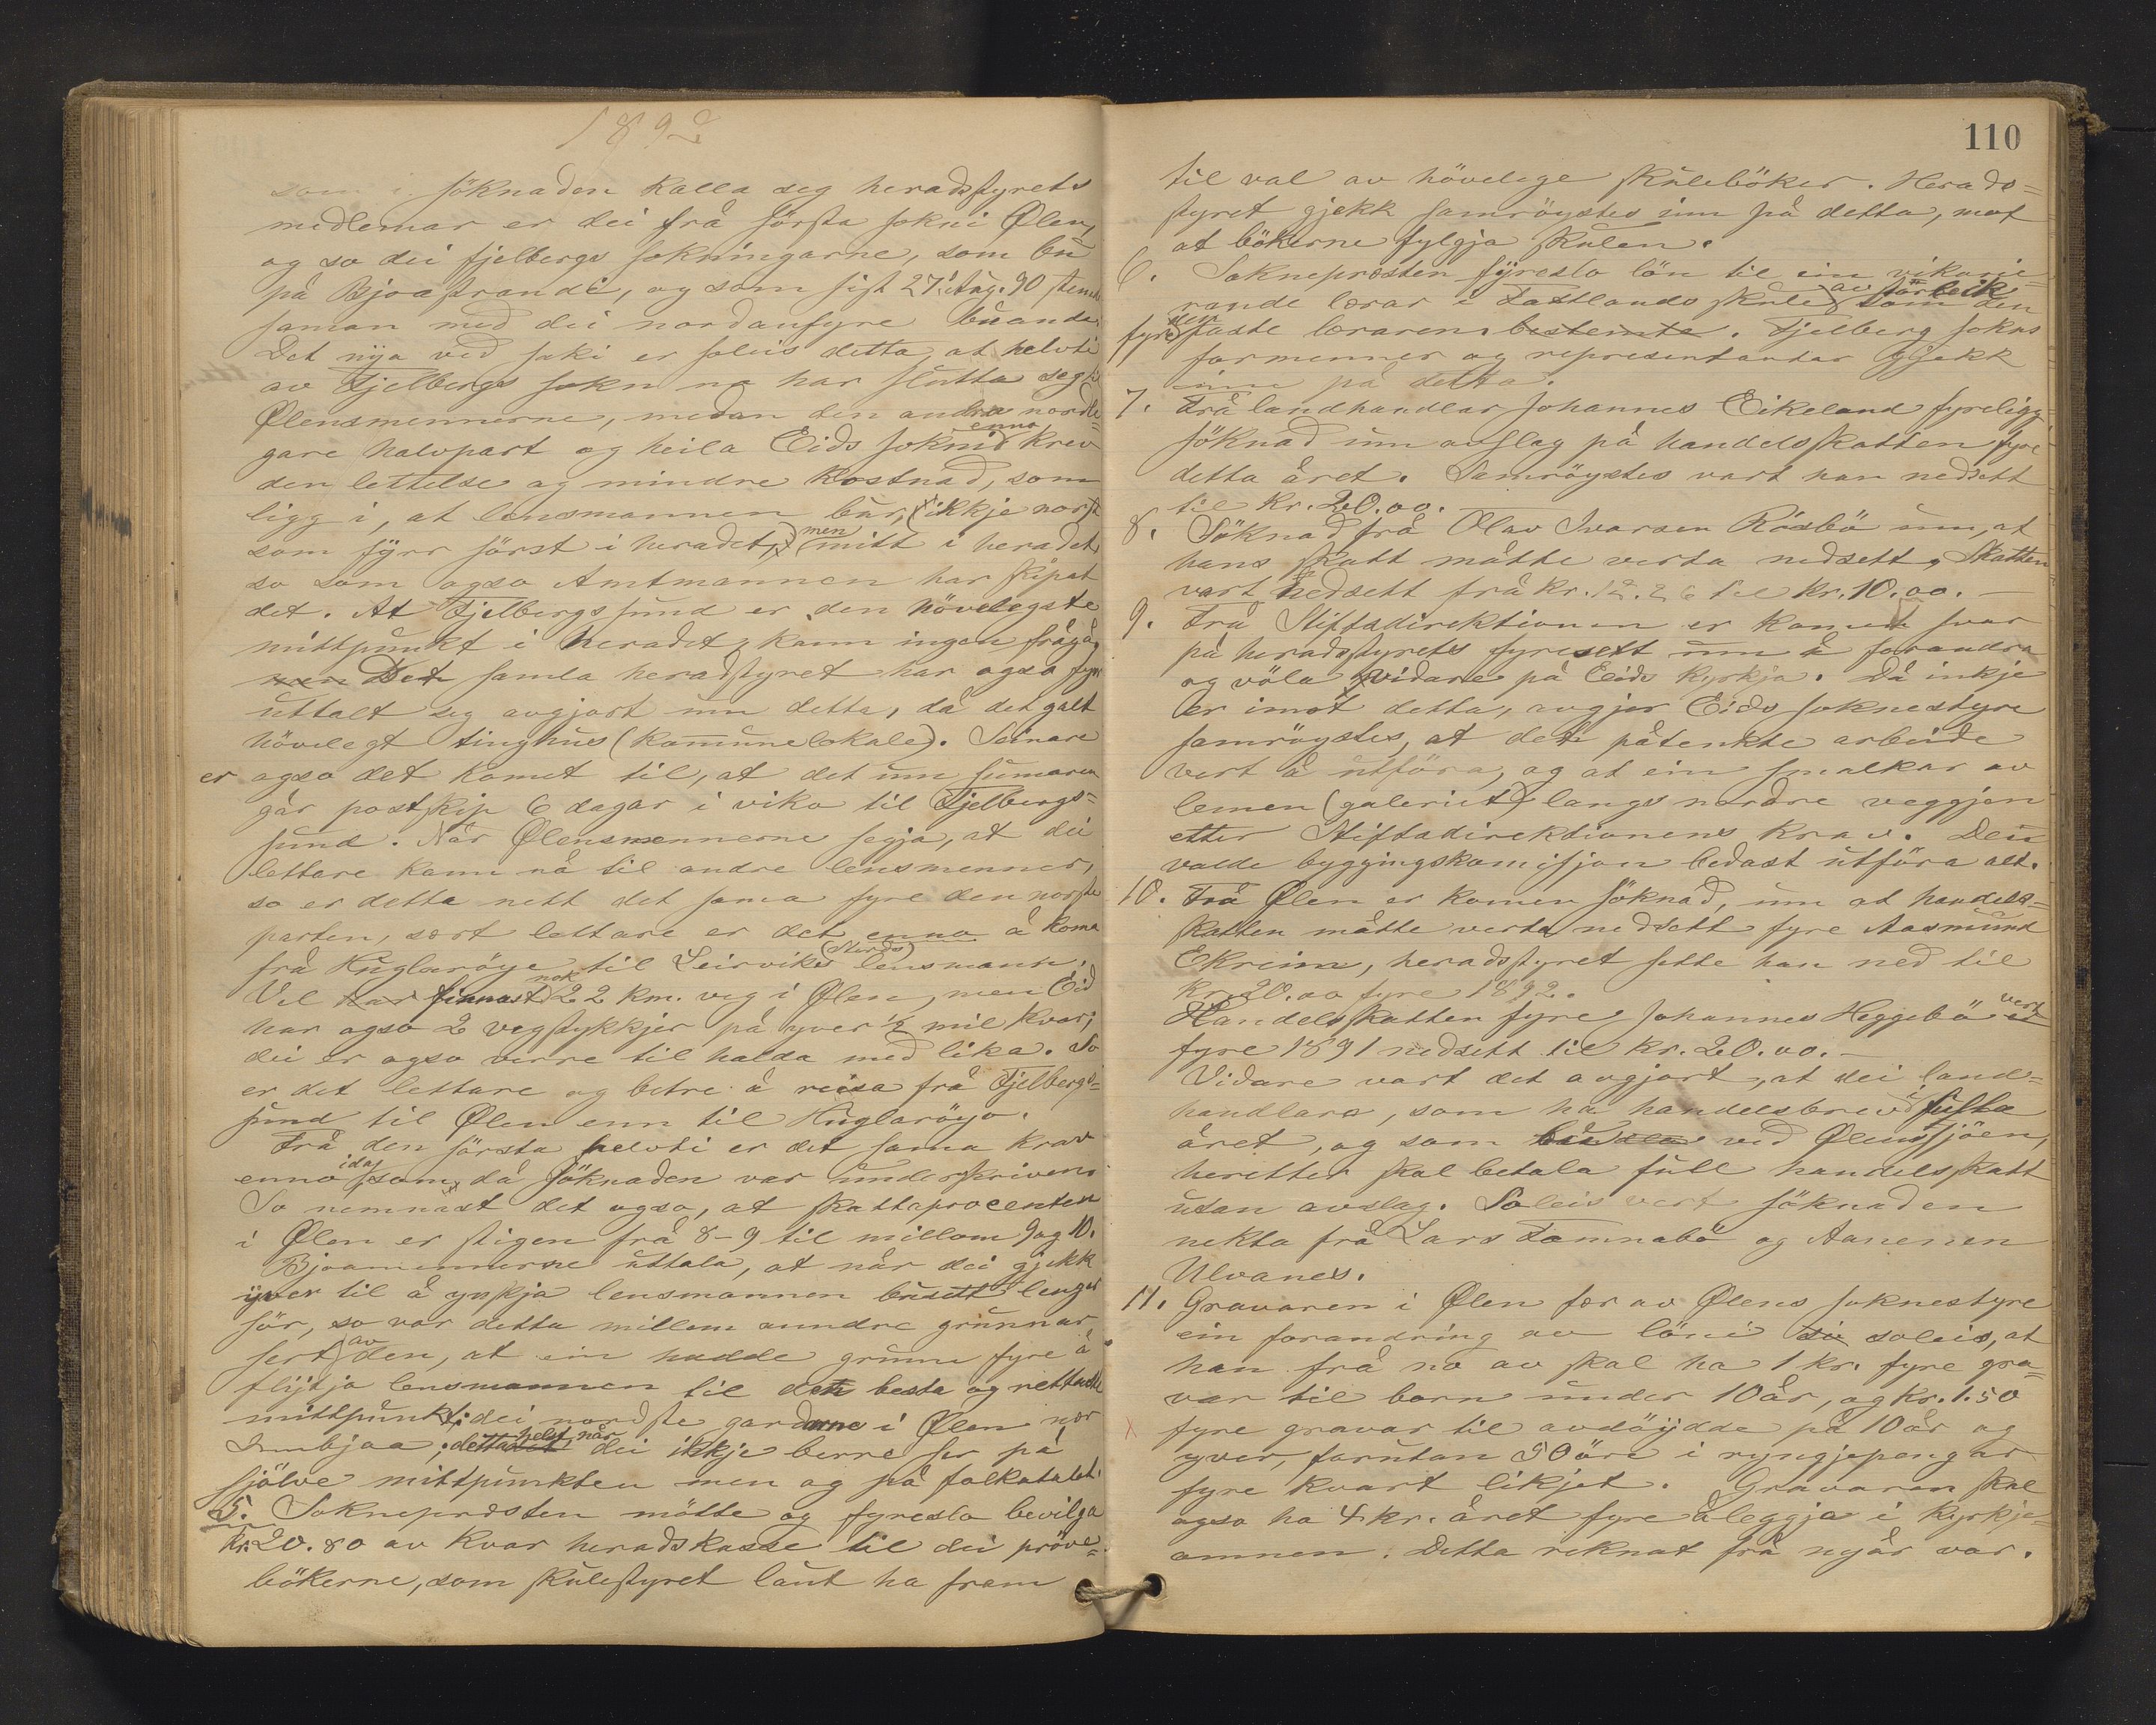 1892
som i söknaden kalla seg heradsstyrets
medlemar er dei frå sörsta sokni Ølen,
og so dei fjelbergs sokningarne, som bu
på Bjoastrandi, og som sist 27. Aug. 90 stemde
saman med dei nordanfyre buande.
Det nya ved saki er soleis detta, at helvti
av Fjelbergs sokn no har slutta seg til
Ølensmennerne, medan den andre nordle=
gare halvpart og heila Eids sokni enno krev
den lettelse og mindre kostnad, som
ligg i, at lensmannen bur, (ikkje norst
som fyrr sörst i heradet,) men mitt i heradet
so som ogso Amtmannen har skipat
det. At Fjelbergssund er den hövelegste
mittpunkt i heradet, kann ingen frågå,
men Det samla heradstyret har ogso fyrr
uttalt seg avgjort um detta, då det galt
hövelegt tinghus (kommunelokale). Seinare
er ogso det komet til, at det um sumaren
går postskip 6 dagar i viko til Fjelbergs=
sund. Når Ølensmennerne segja, at dei
lettare kann nå til andre lensmenner,
so er detta nett det sama fyre den norste
parten, sært lettare er det enno å koma
frå Huglaröyo til Leirviks (Stords) lensmann.
Vel har finnast nok 22 km. veg i Ølen, men Eid
har ogso 2 vegstykkjer på yver ½ mil kvar;
dei er ogso verre til halda med lika. So
er det lettare og betre å reisa frå Fjelbergs=
sund til Ølen enn til Huglaröyo.
Frå den sörsta helvti er det sama krav
enno idag som då söknaden var underskriven.
So nemnast det ogso, at skattaprocenten
i Ølen er stigen frå 8-9 til millom 9 og 10.
Bjoamennerne uttala, at når dei gjekk
yver til å ynskja lensmannen busett lenger
sör, so var detta millom anndre grunnar
sert av den, at ein hadde grunn fyre å
flytja lensmannen til det besta og rettaste
mittpunkt; dei nordste gardarne i Ølen nær
Innbjoa; detta helst når dei ikkje berre ser på
sjölve mittpunkten men og på folketalet.
5. Soknepresten mötte og fyreslo bevilga
Kr. 20.80 av kvar heradskasse til dei pröve=
bökerne, som skulestyret laut ha fram
110
til val av hövelege skuleböker. Herads=
styret gjekk samröystes inn på detta, mot
at bökerne fylgja skulen.
6. Soknepresten fyreslo lön til ein vikarie=
rande lærar i Tastlands skule av storleik som den
fyre den faste læraren bestemte. Fjelberg sokns
formenner og representantar gjekk
inn på detta.
7. Frå landhandlar Johannes Eikeland fyreligg
söknad um avslag på handelsskatten fyre
detta året. Samröystes vart han nedsett
til Kr. 20.00.
8. Söknad frå Olav Ivarsen Rösbö um, at
hans skatt måtte verta nedsett, Skatten
vart nedsett frå Kr. 12.26 til Kr. 10.00. —
9. Frå Stiftsdirektionen er komet svar
på heradsstyrets fyresett um å forandra
og völa vidare på Eids kyrkja. Då inkje
er imot detta, avgjer Eids soknestyre
samröystes, at det påtenkte arbeide
vert å utföra, og at ein smalkar av
lemen (galeriet) langs nordre veggjen
etter Stiftsdirektionens krav. Den
valde byggingskomisjon bedast utföra alt.
10. Frå Ølen er komen söknad, um at handels=
skatten måtte verta nedsett fyre Aasmund
Ekreim, heradsstyret sette han ned til
Kr. 20.00 fyre 1892.
Handelsskatten fyre Johannes Heggebö vert
fyre 1891 nedsett til Kr. 20.00. —
Vidare vart det avgjort, at dei land=
handlara, som ha handelsbrev i sista
året, og som ved Ølenssjöen,
heretter skal betala full handelsskatt
utan avslag. Soleis vert söknaden
nekta frå Lars Tomnabö og Aanenen
Ulvanes.
11. Gravaren i Ølen fær av Ølens soknestyre
ein forandring av löni soleis, at
han frå no av skal ha 1 kr. fyre gra=
var til born under 10 år, og kr. 1.50
x fyre gravar til avdöydde på 10 år og
yver, forutan 50 öre i ryngjepengar
fyre kvart likjet. Gravaren skal
ogso ha 4 kr. året fyre åleggja i kyrkje=
omnen. Detta reknat frå nyår var.